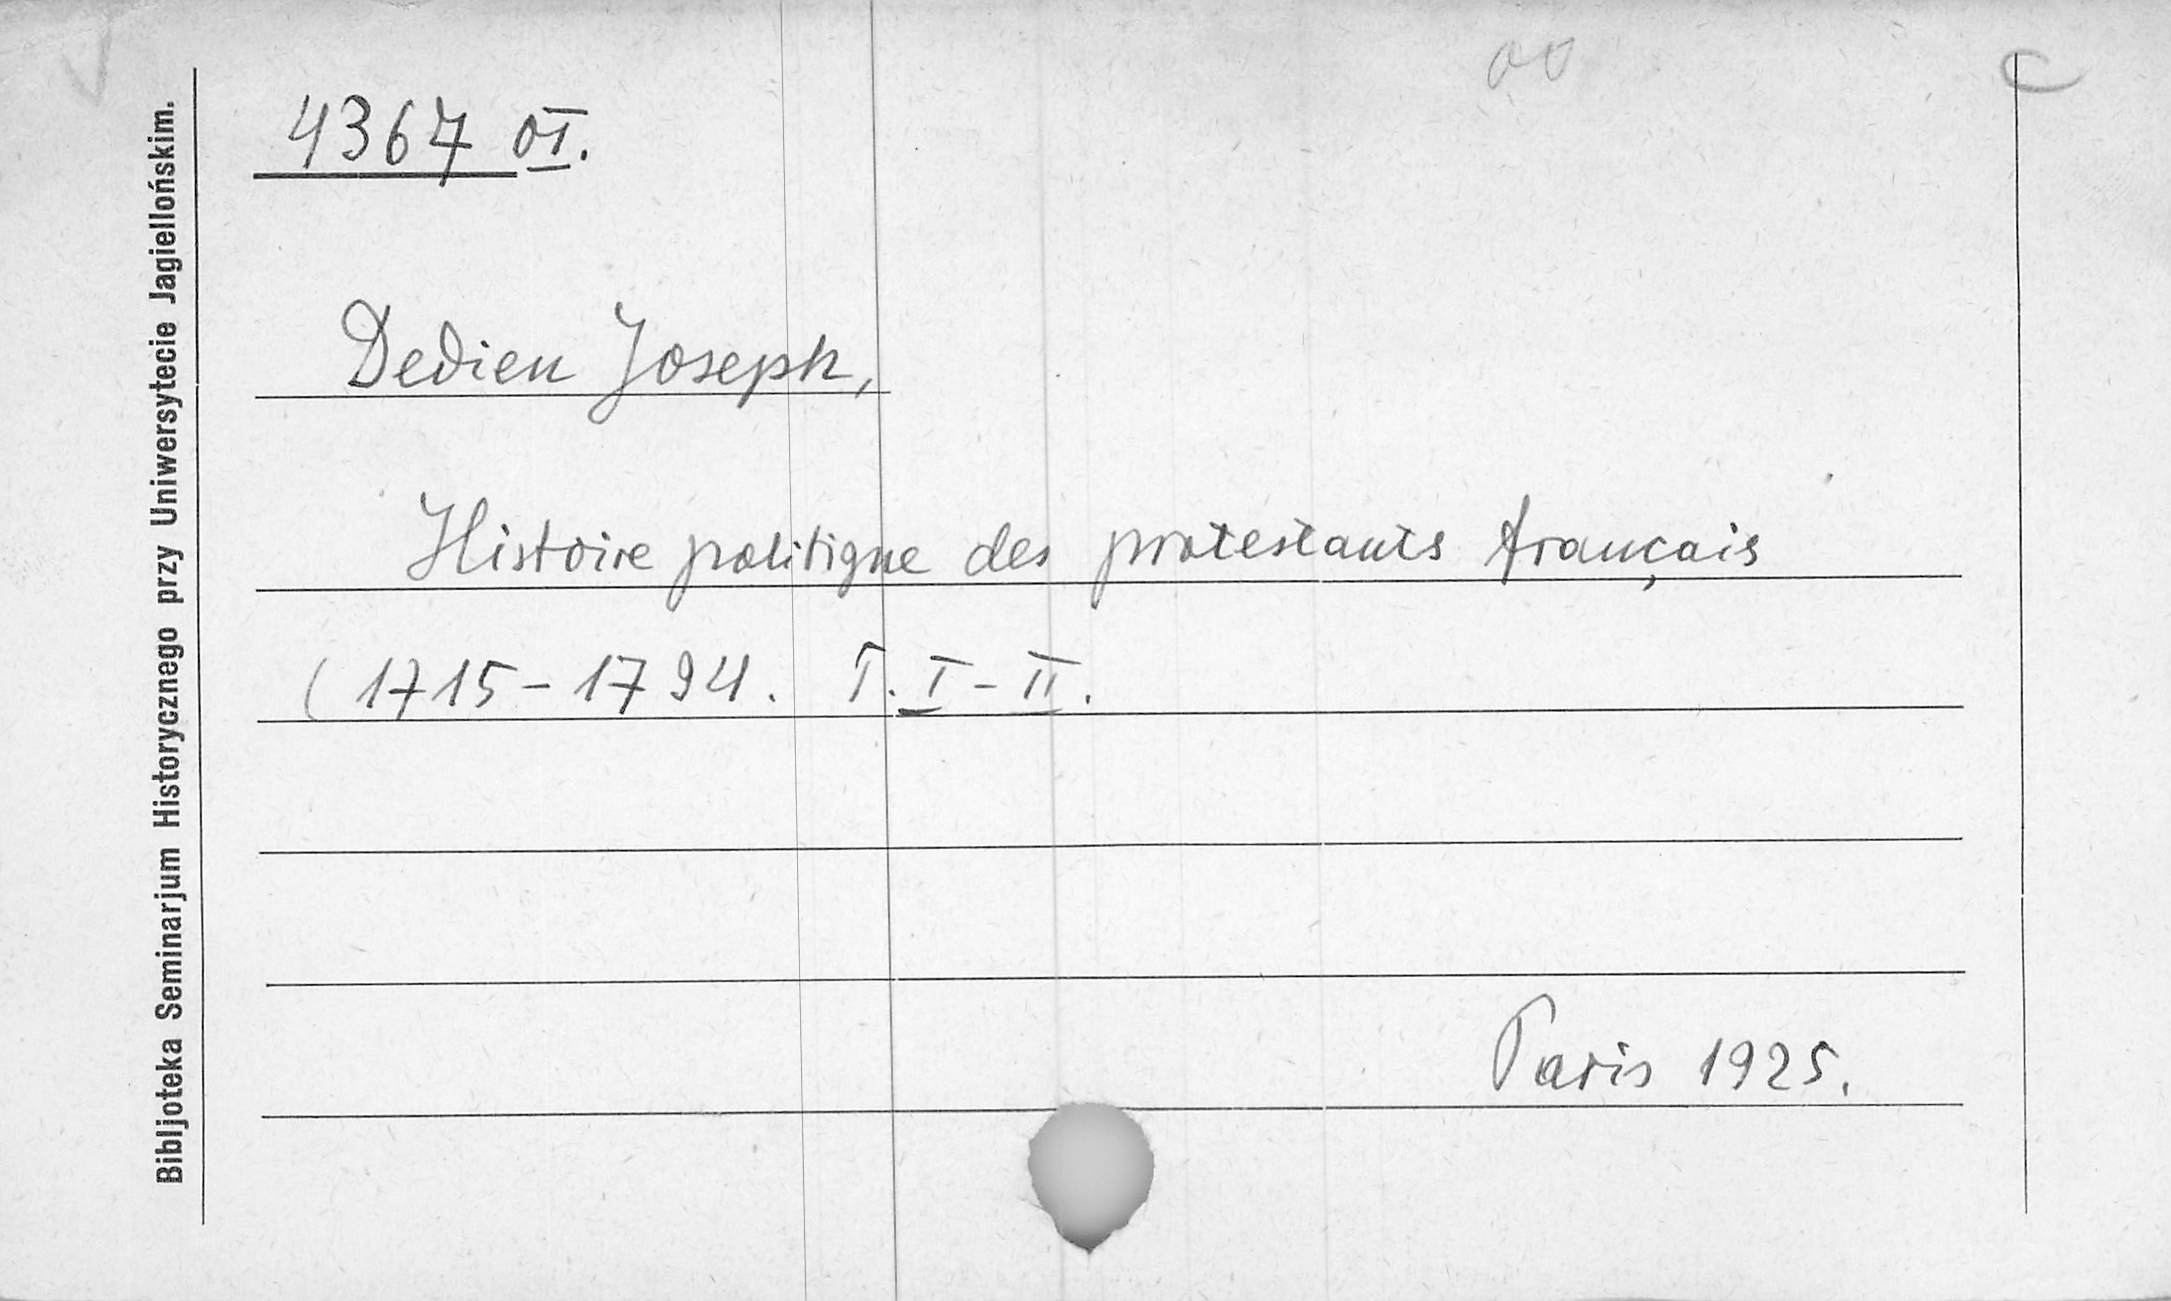 Bibljoteka Seminarjum Historycznego przy Uniwersytecie Jagiellońskim.
4367 OI.
Dedieu Joseph,
Histoire politique des protestants français
(1715-1794. T. I-II.
Paris 1925.